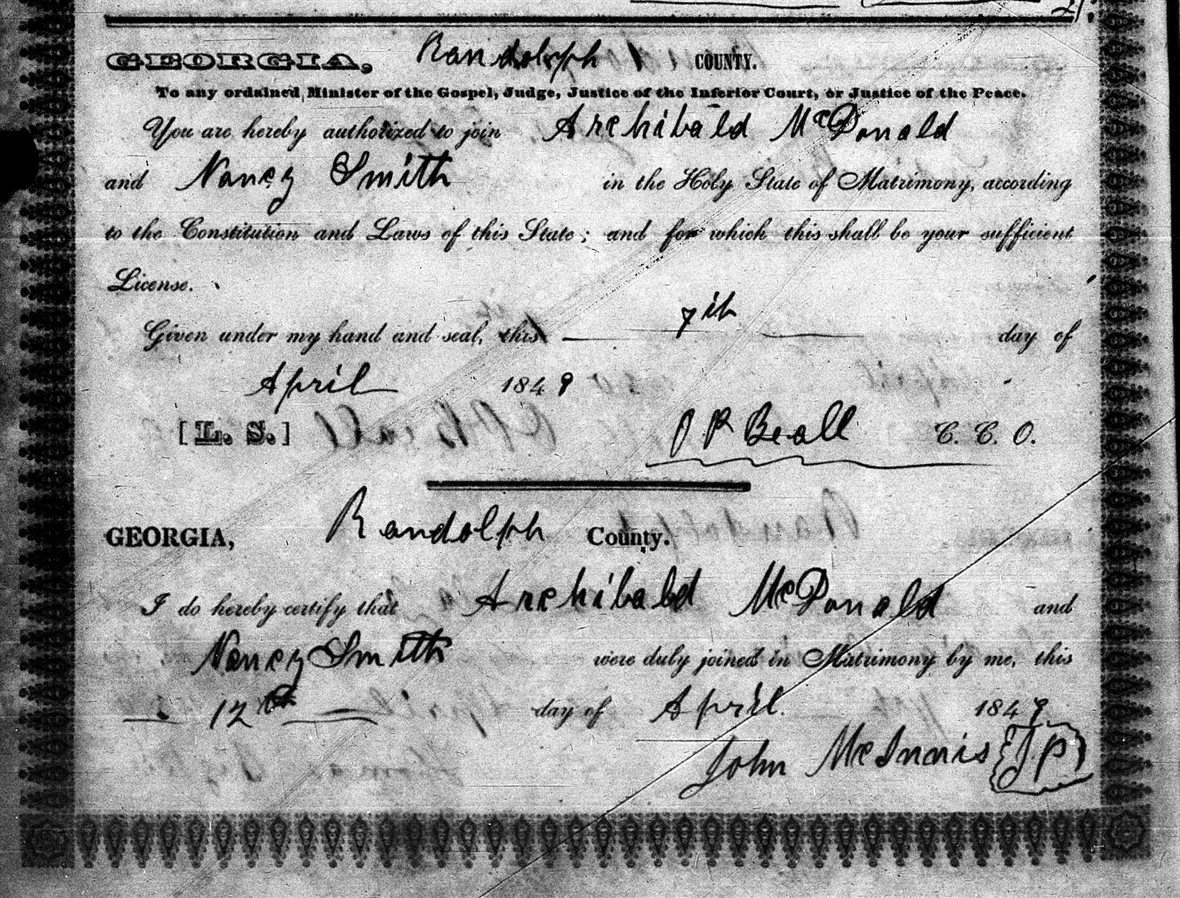 GEORGIA, Randolph COUNTY.
To any ordained Minister of the Gospel, Judge, Justice of the Inferior Court, or Justice of the Peace.
You are hereby authorized to join Archibald McDonald
and Nancy Smith in the Holy State of Matrimony, according
to the Constitution and Laws of this State; and for which this shall be your sufficient
License.
Given under my hand and seal, this 7th day of
April 1849
[L. S.] O P Beall C. C. O.
GEORGIA, Randolph County.
I do hereby certify that Archibald McDonald and
Nancy Smith were duly joined in Matrimony by me, this
12th day of April 1849
John McInnis JP